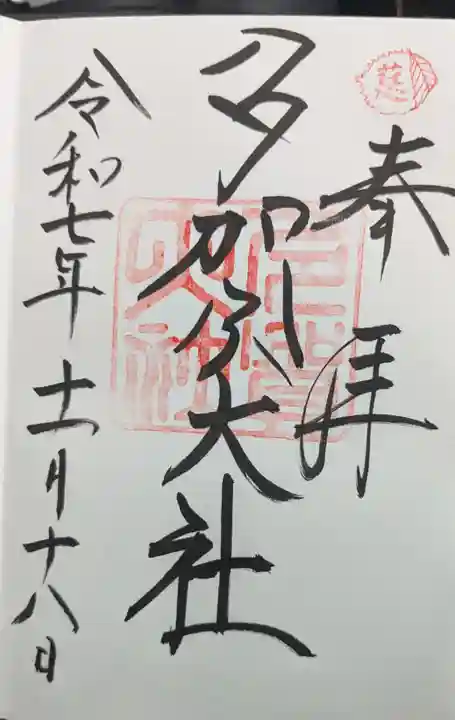 奉拝
多賀大社
令和七年十一月十八日
多賀大社